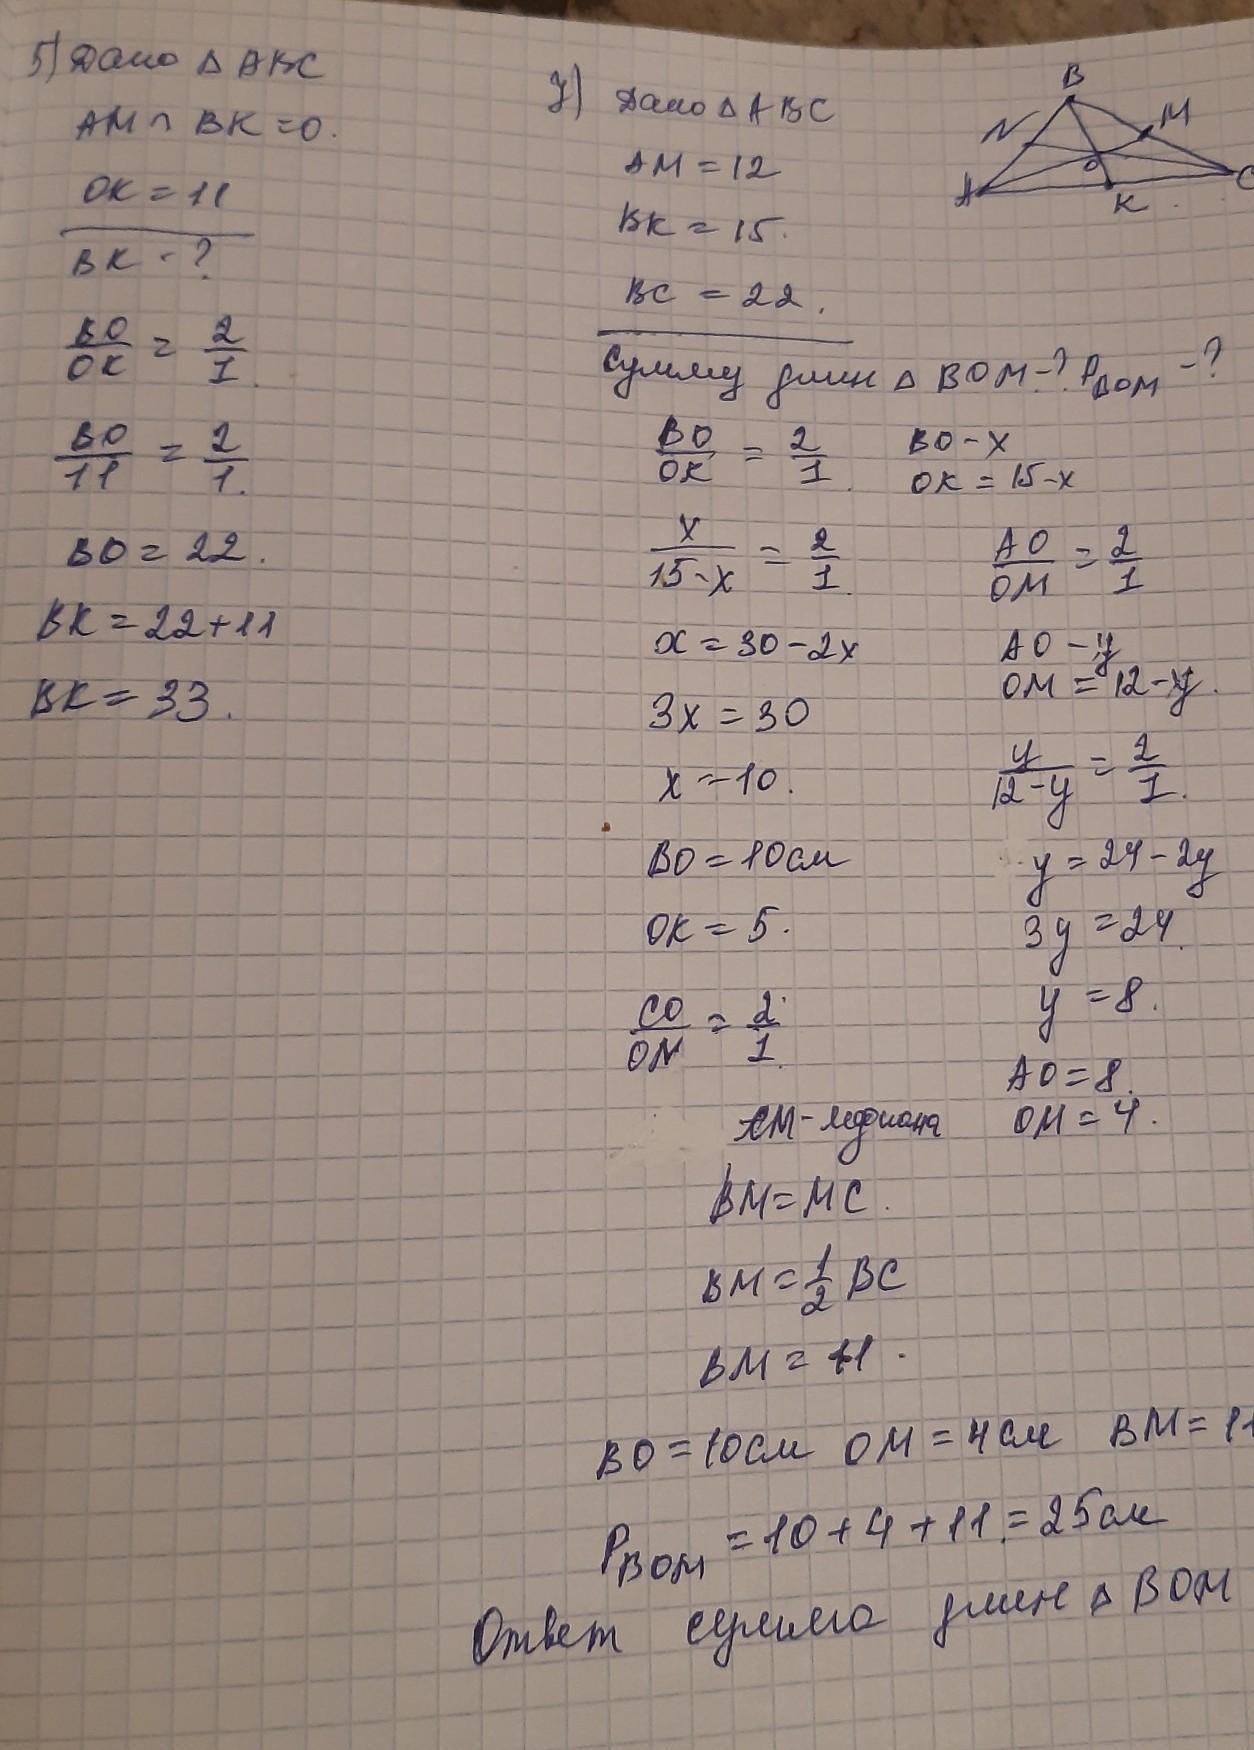 5) Дано △ ABC
AM ∩ BK = O.
OK = 11
BK - ?
BO/OK = 2/1
BO/11 = 2/1.
BO = 22.
BK = 22 + 11
BK = 33.
7) Дано △ ABC
AM = 12
BK = 15.
BC = 22.
B
N
M
A
O
K
C
Сумму длин △ BOM - ? P BOM - ?
BO/OK = 2/1
BO - x
OK = 15 - x
x/15-x = 2/1
x = 30 - 2x
3x = 30
x = 10.
BO = 10 см
OK = 5.
CO/ON = 2/1
AO/OM = 2/1
AO - y
OM = 12 - y.
y/12-y = 2/1.
y = 24 - 2y
3y = 24.
y = 8.
AO = 8.
OM = 4.
AM - медиана
BM = MC.
BM = 1/2 BC
BM = 11.
BO = 10 см OM = 4 см BM = 11
P BOM = 10 + 4 + 11 = 25 см
Ответ сумма длин △ BOM